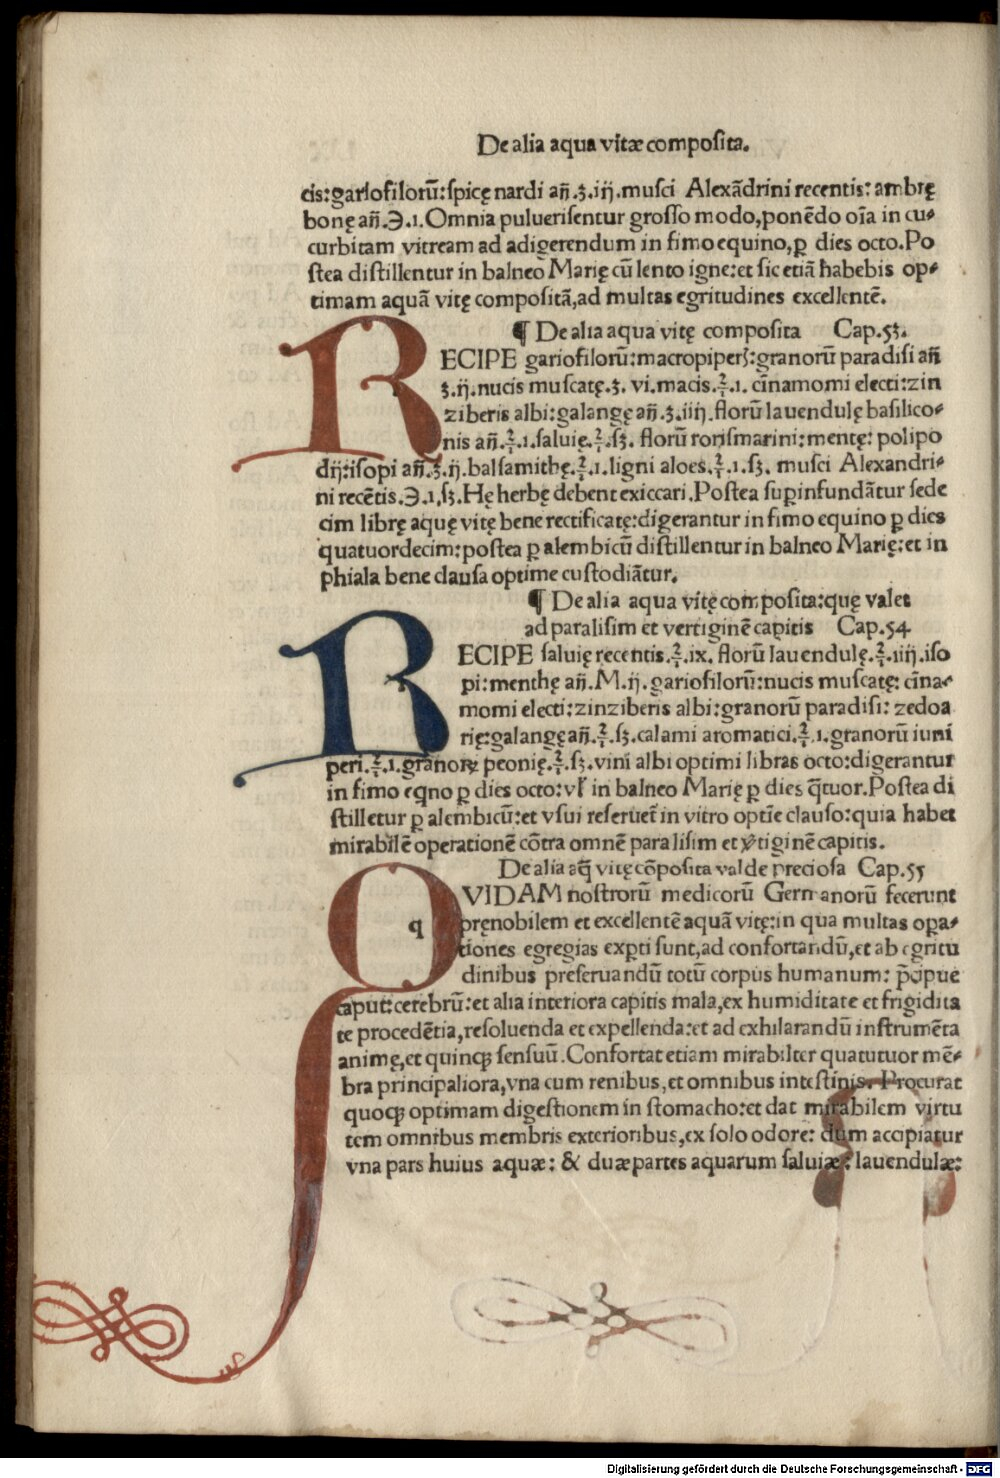 De alia aqua vitæ composita.
cis:gariofilorū:spicę nardi añ.ʒ.iij.musci Alexādrini recentis: ambrę
bonę añ.℈.1.Omnia puluerisentur grosso modo,ponēdo oīa in cu⸗
curbitam vitream ad adigerendum in fimo equino,ꝑ dies octo.Po
stea distillentur in balneo Marię cū lento igne:et sic etiā habebis op⸗
timam aquā vitę compositā,ad multas egritudines excellentē.
¶ De alia aqua vitę composita Cap.53.
RECIPE gariofilorū:macropiperꝭ:granorū paradisi añ
ʒ.ij.nucis muscatę.ʒ. vi.macis.℥.1. cīnamomi electi:zin
ziberis albi:galangę añ.ʒ.iiij.florū lauendulę basilico⸗
nis añ.℥.1.saluię.℥.sʒ. florū rorismarini:mentę: polipo
dij:isopi añ.ʒ.ij.balsamithę.℥.1.ligni aloes.℥.1.sʒ. musci Alexandri⸗
ni recētis.℈.1,sʒ.Hę herbę debent exiccari.Postea suꝑinfundātur sede
cim librę aquę vitę bene rectificatę:digerantur in fimo equino ꝑ dies
quatuordecim:postea ꝑ alembicū distillentur in balneo Marię:et in
phiala bene clausa optime custodiātur.
¶ De alia aqua vitę composita:quę valet
ad paralisim et vertiginē capitis Cap.54
RECIPE saluię recentis.℥.ix. florū lauendulę.℥.iiij.iso
pi:menthę añ.M.ij. gariofilorū:nucis muscatę: cīna⸗
momi electi:zinziberis albi:granorū paradisi: zedoa
rię:galangę añ.℥.sʒ.calami aromatici.℥.1.granorū iuni
peri.℥.1.granoꝝ peonię.℥.sʒ.vini albi optimi libras octo:digerantur
in fimo eqno ꝑ dies octo:vl̓ in balneo Marię ꝑ dies q̄tuor.Postea di
stilletur ꝑ alembicū:et vsui reseruet̄ in vitro optīe clauso:quia habet
mirabilē operationē cōtra omnē paralisim et v̓tiginē capitis.
De alia aq̄ vitę cōposita valde preciosa Cap.55
qVIDAM nostrorū medicorū Germanorū fecerunt
pręnobilem et excellentē aquā vitę:in qua multas oꝑa⸗
tiones egregias exꝑti sunt,ad confortandū,et ab egritu
dinibus preseruandū totū corpus humanum: p̄cipue
caput:cerebrū:et alia interiora capitis mala,ex humiditate et frigidita
te procedētia,resoluenda et expellenda:et ad exhilarandū instrumēta
animę,et quinqꝫ sensuū.Confortat etiam mirabilter quatutuor mē⸗
bra principaliora,vna cum renibus,et omnibus intestinis. Procurat
quoqꝫ optimam digestionem in stomacho:et dat mirabilem virtu
tem omnibus membris exterioribus,ex solo odore: dum accipiatur
vna pars huius aquæ: & duæ partes aquarum saluiæ: lauendulæ:
Digitalisierung gefördert durch die Deutsche Forschungsgemeinschaft - DFG